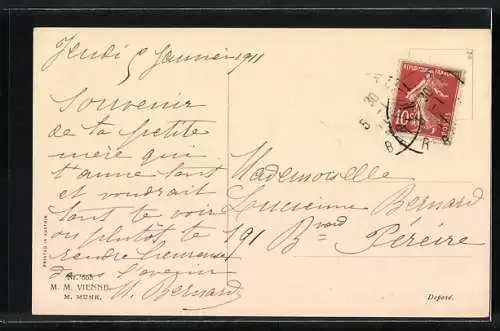 Jeudi 5 Janvier 1911
Souvenir
de ta petite
mère qui
t'aime tant
et voudrait
tant te voir
ou plutôt te
rendre heureuse
dans l'avenir
M. Bernard
Mademoiselle
Lucienne Bernard
191 Bvard Péreire
REPUBLIQUE FRANÇAISE
10c
POSTES
PRINTED IN AUSTRIA
Nr. 555
M. M. VIENNE.
M. MUNK.
Deposé.